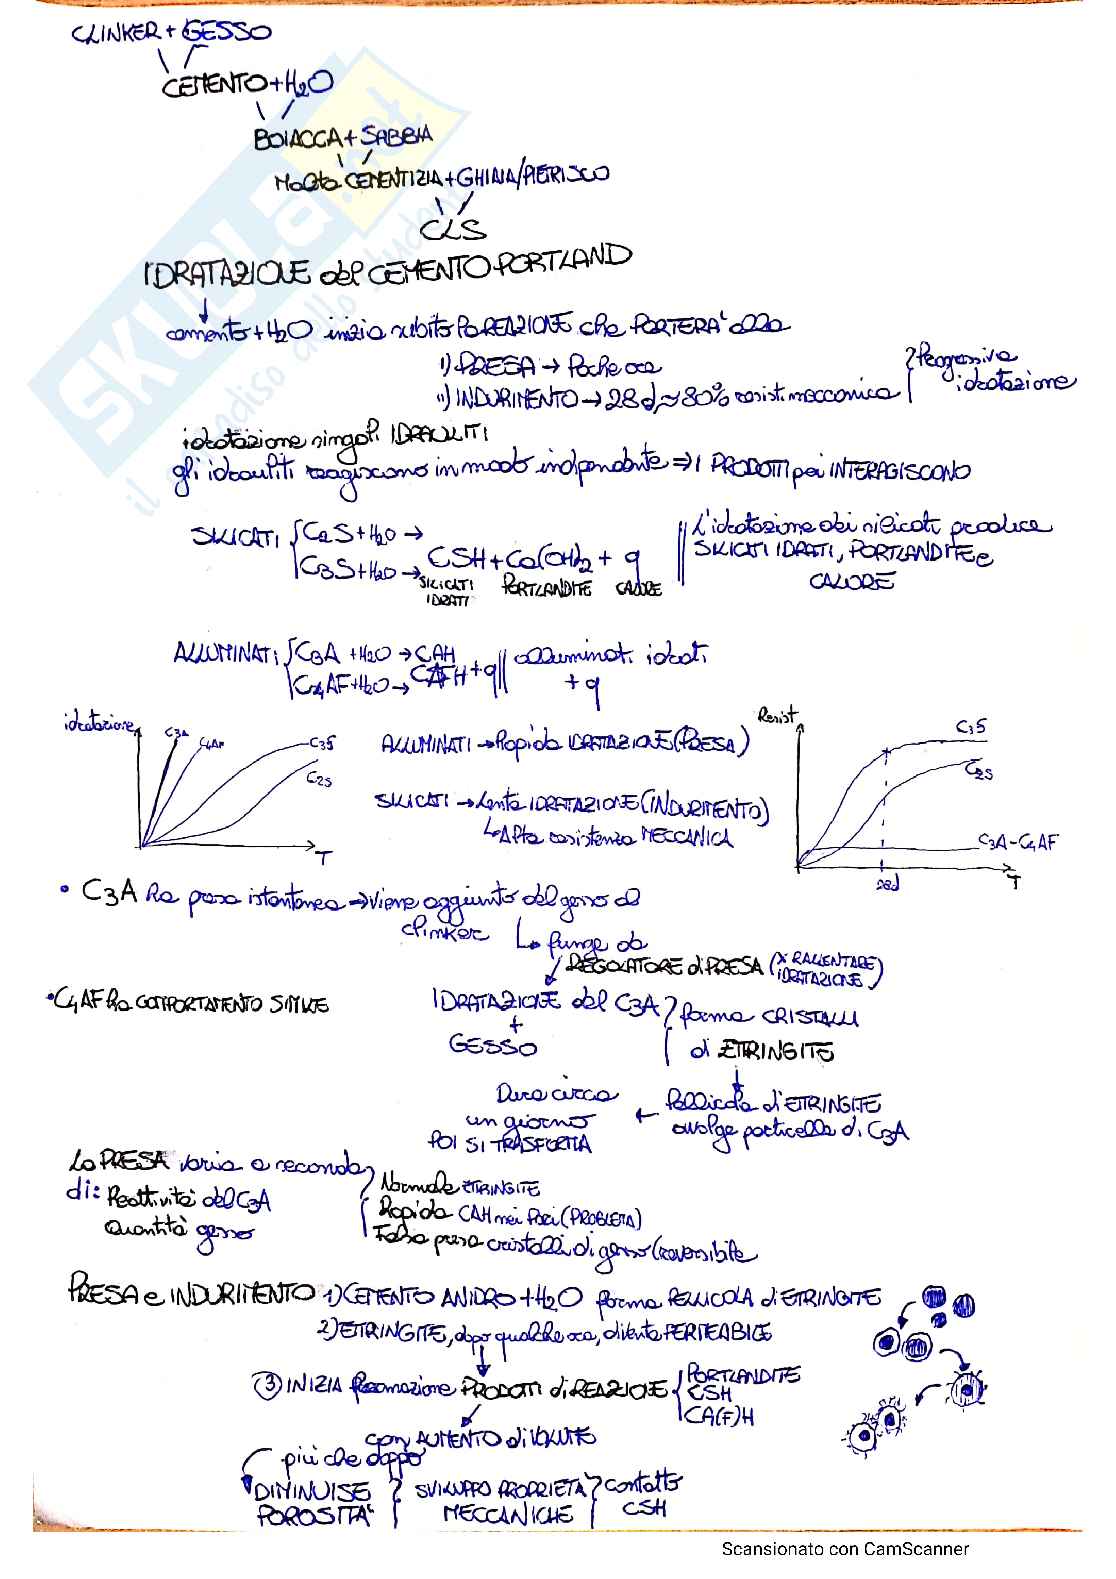 CLINKER + GESSO
CEMENTO + H2O
BOIACCA + SABBIA
Malta CEMENTIZIA + GHIAIA/PIETRISCO
CLS
IDRATAZIONE del CEMENTO PORTLAND
cemento + H2O inizia subito la REAZIONE che PORTERA' alla
1) PRESA → Poche ore
Progressiva
idratazione
11) INDURIMENTO → 28d ≈ 80% resist. meccanica
idratazione singoli IDRAULITI
gli idrauliti reagiscono in modo indipendente ⇒ I PRODOTTI poi INTERAGISCONO
SILICATI { C2S + H2O →
C3S + H2O → CSH + Ca(OH)2 + q
SILICATI IDRATI PORTLANDITE CALORE
L'idratazione dei silicati produce
SILICATI IDRATI, PORTLANDITE e
CALORE
ALLUMINATI { C3A + H2O → CAH
C4AF + H2O → CAFH + q || alluminati idrati
+ q
idratazione
C3A C4AF C3S
C2S
T
ALLUMINATI → Rapida IDRATAZIONE (PRESA)
SILICATI → Lenta IDRATAZIONE (INDURIMENTO)
↳ Alta resistenza MECCANICA
Resist
C3S
C2S
C3A - C4AF
28d T
• C3A ha presa istantanea → viene aggiunto del gesso al
clinker ↳ funge da
REGOLATORE di PRESA (X RALLENTARE
IDRATAZIONE)
• C4AF ha COMPORTAMENTO SIMILE
IDRATAZIONE del C3A
+
GESSO
forma CRISTALLI
di ETTRINGITE
Pellicola d'ETTRINGITE
avvolge particelle di C3A
← Dura circa
un giorno
POI SI TRASFORMA
La PRESA varia a seconda
di: Reattività del C3A
Quantità gesso
Normale ETTRINGITE
Rapida CAH nei Pori (PROBLEMA)
Falsa presa cristalli di gesso (reversibile
PRESA e INDURIMENTO 1) CEMENTO ANIDRO + H2O forma PELLICOLA di ETTRINGITE
2) ETTRINGITE, dopo qualche ora, diventa PERMEABILE
3) INIZIA formazione PRODOTTI di REAZIONE { PORTLANDITE
CSH
CA(F)H
con AUMENTO di VOLUME
più che doppio
DIMINUISCE
POROSITA'
SVILUPPO PROPRIETA'
MECCANICHE
contatto
CSH
Scansionato con CamScanner
SKUOLA.net
il paradiso dello studente